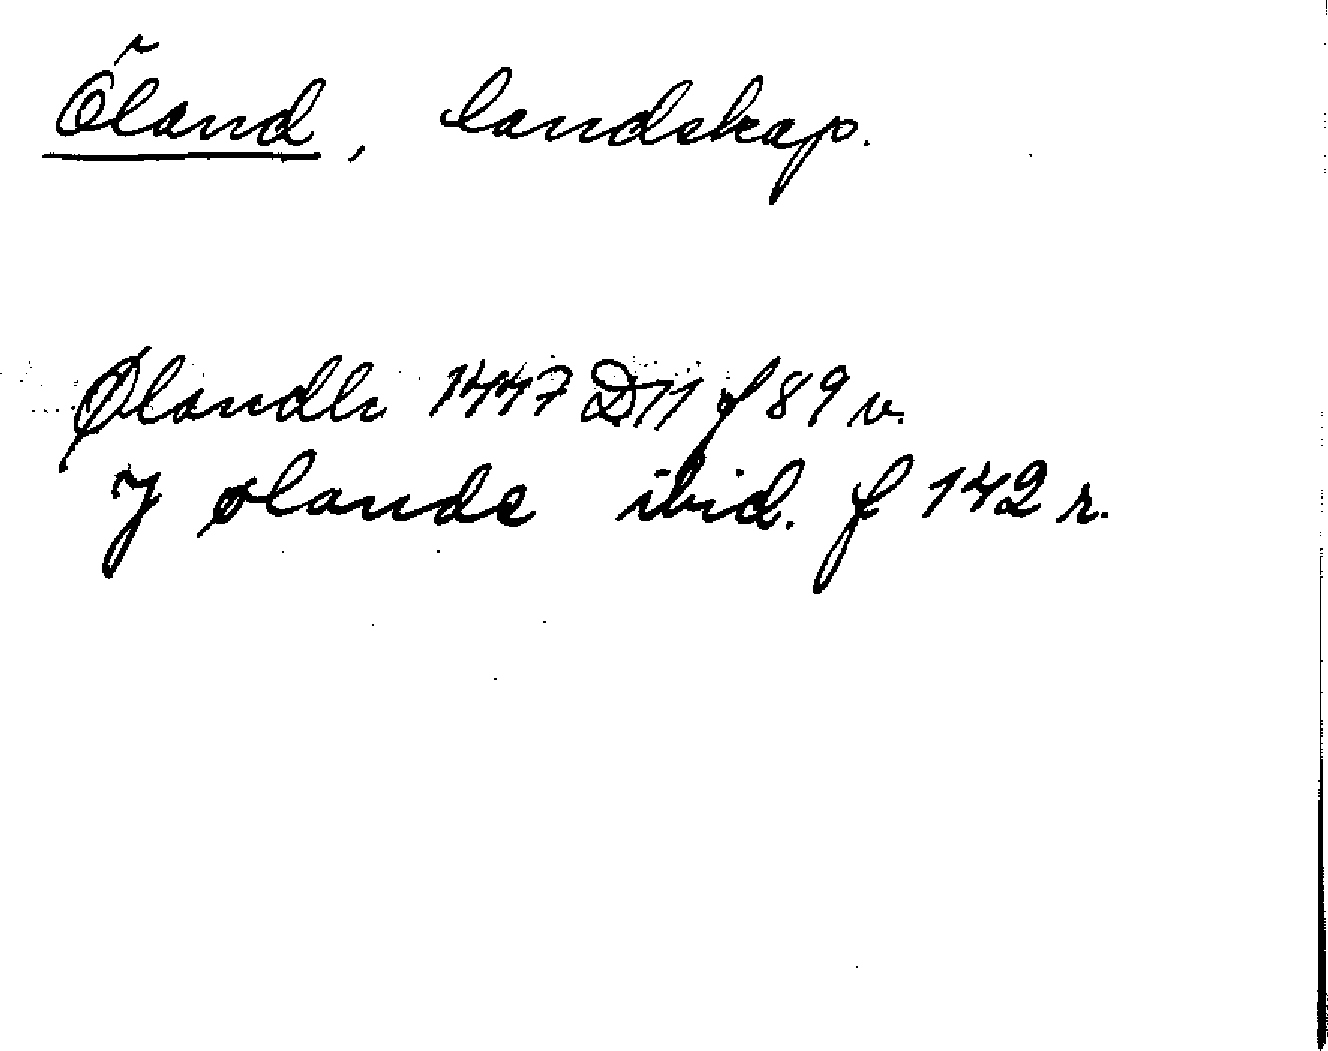 Öland, landskap.
Ølandh 1447 D11 f 89 v.
J ølande ibid. f 142 r.